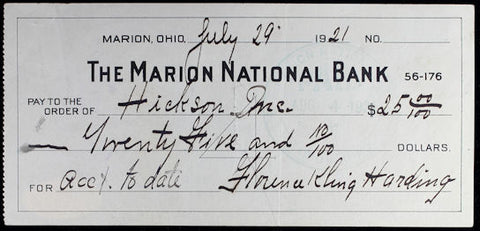 MARION, OHIO, July 29 1921 NO.
THE MARION NATIONAL BANK 56-176
PAY TO THE ORDER OF Hickson Inc. $25 00/100
Twenty Five and no/100 DOLLARS.
FOR Acct. to date Florence Kling Harding